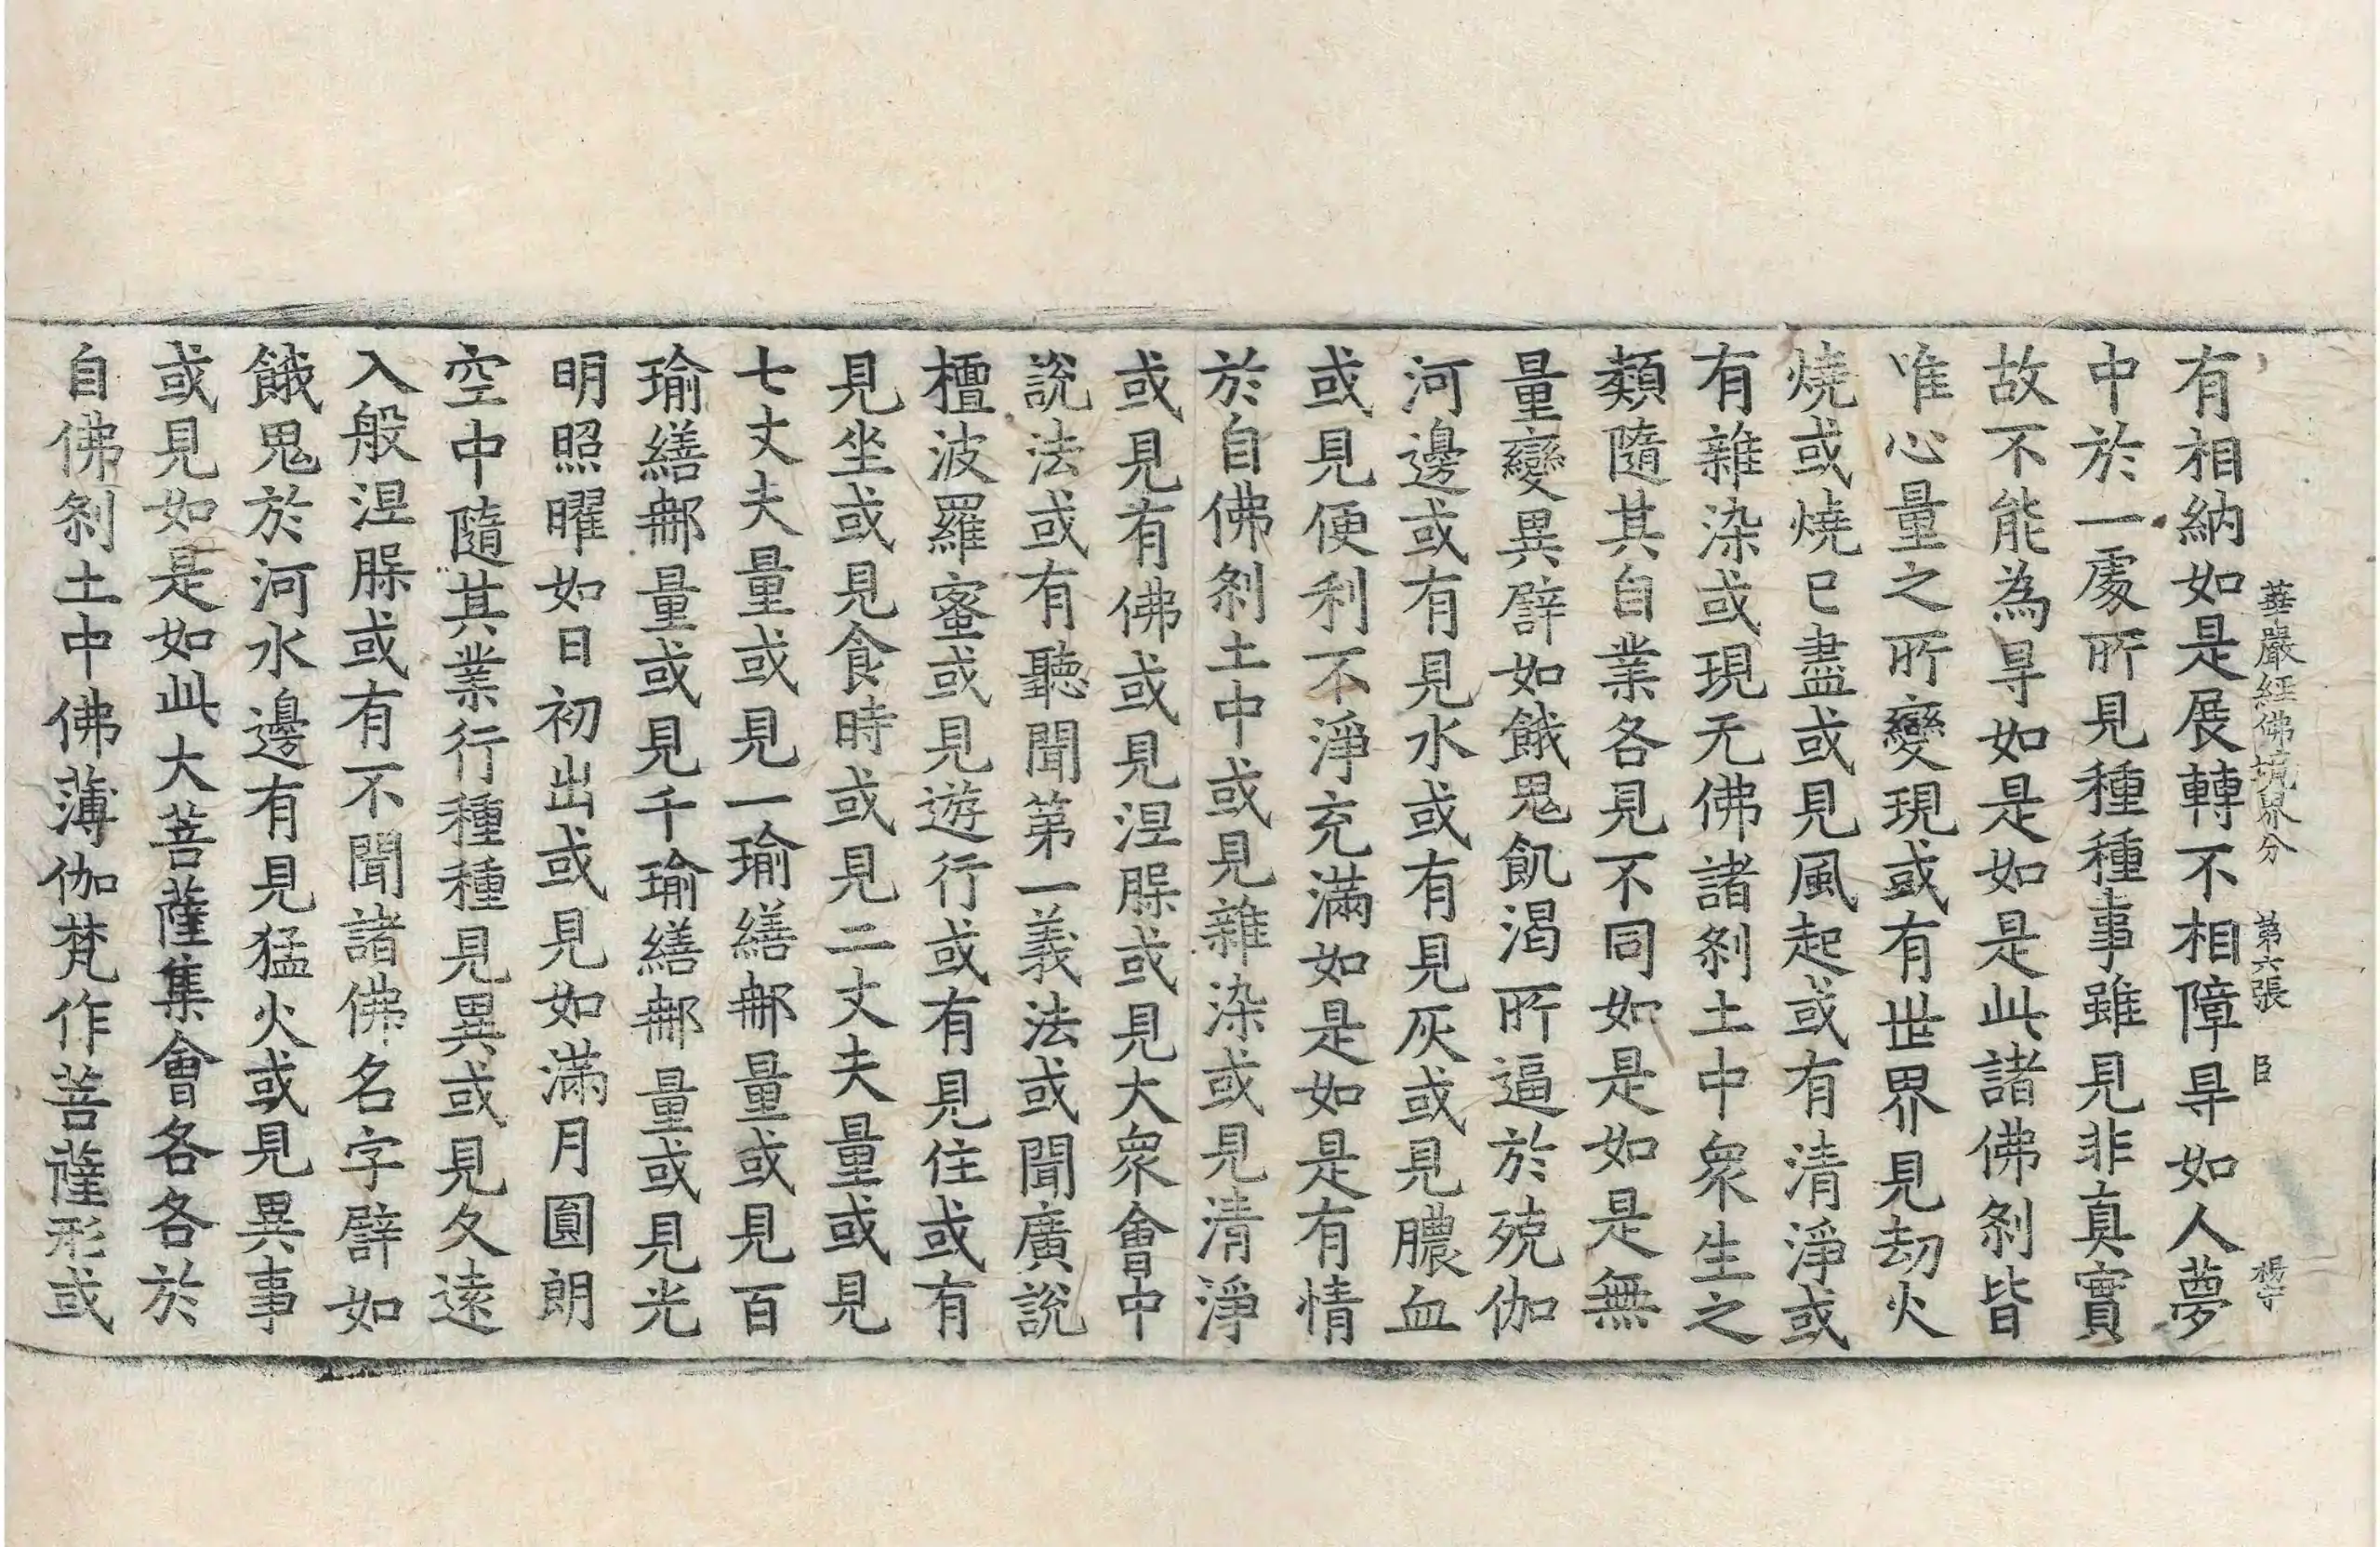 華嚴經佛境界分 第六張 臣 楊守
有相納如是展轉不相障㝵如人夢
中於一處所見種種事雖見非真實
故不能為㝵如是如是此諸佛剎皆
唯心量之所變現或有世界見劫火
燒或燒已盡或見風起或有清淨或
有雜染或現无佛諸剎土中衆生之
類隨其自業各見不同如是如是無
量變異譬如餓鬼飢渴所逼於殑伽
河邊或有見水或有見灰或見膿血
或見便利不淨充滿如是如是有情
於自佛剎土中或見雜染或見清淨
或見有佛或見涅槃或見大衆會中
說法或有聽聞第一義法或聞廣說
檀波羅蜜或見遊行或有見住或有
見坐或見食時或見二丈夫量或見
七丈夫量或見一瑜繕那量或見百
瑜繕那量或見千瑜繕那量或見光
明照曜如日初出或見如滿月圓朗
空中隨其業行種種見異或見久遠
入般涅槃或有不聞諸佛名字譬如
餓鬼於河水邊有見猛火或見異事
或見如是如此大菩薩集會各各於
自佛剎土中佛薄伽梵作菩薩形或